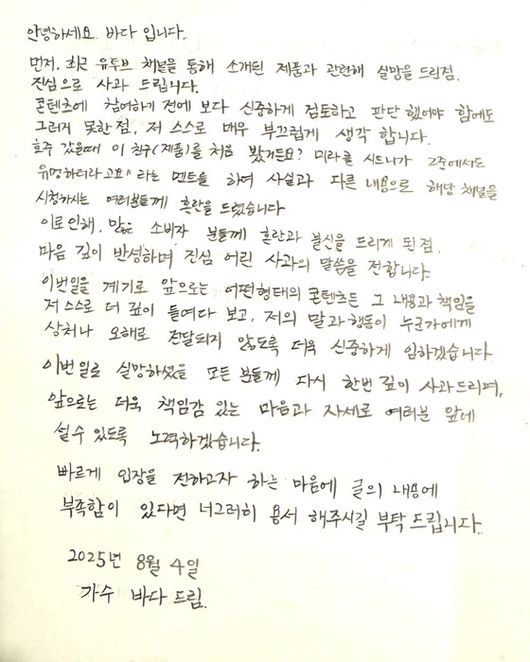 안녕하세요 바다 입니다.
먼저, 최근 유투브 채널을 통해 소개된 제품과 관련해 실망을 드린점,
진심으로 사과 드립니다.
콘텐츠에 참여하기 전에 보다 신중하게 검토하고 판단 했어야 함에도
그러지 못한 점, 저 스스로 매우 부끄럽게 생각 합니다.
호주 갔을때 이 친구(제품)를 처음 봤거든요? 미라클 시드니가 그쪽에서도
유명하더라고요" 라는 멘트를 하여 사실과 다른 내용으로 해당 채널을
시청하시는 여러분들께 혼란을 드렸습니다
이로 인해, 많은 소비자 분들께 혼란과 불신을 드리게 된 점,
마음 깊이 반성하며 진심 어린 사과의 말씀을 전합니다.
이번일을 계기로 앞으로는 어떤형태의 콘텐츠든 그 내용과 책임을
저 스스로 더 깊이 들여다 보고, 저의 말과 행동이 누군가에게
상처나 오해로 전달되지 않도록 더욱 신중하게 임하겠습니다
이번일로 실망하셨을 모든 분들께 다시 한번 깊이 사과드리며,
앞으로는 더욱 책임감 있는 마음과 자세로 여러분 앞에
설 수 있도록 노력하겠습니다.
빠르게 입장을 전하고자 하는 마음에 글의 내용에
부족함이 있다면 너그러히 용서 해주시길 부탁 드립니다.
2025년 8월 4일
가수 바다 드림.